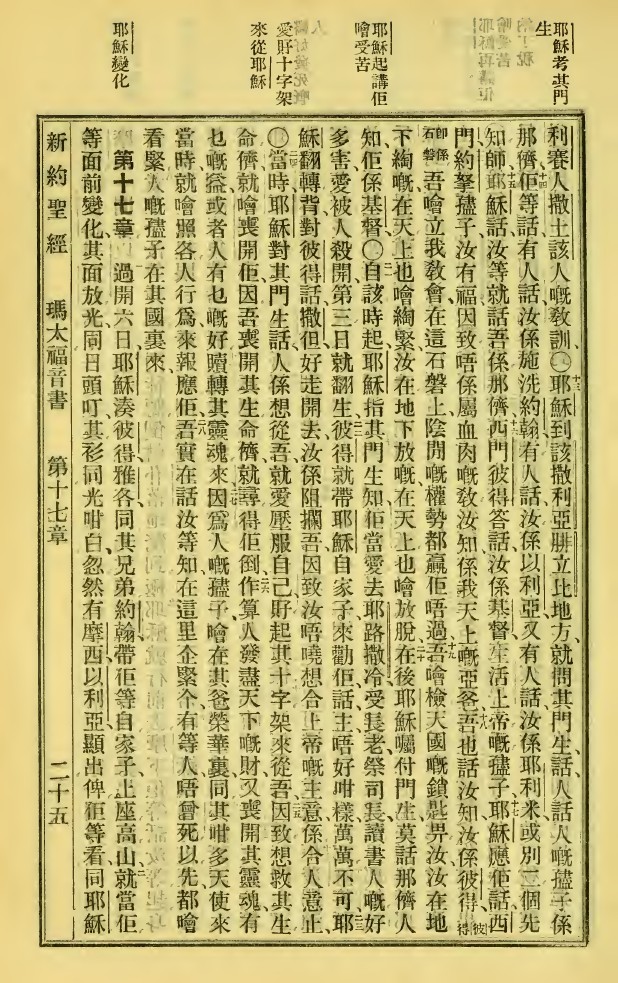 耶穌考其門
生
耶穌起講佢
噲受苦
愛𢪛十字架
來從耶穌
耶穌變化
利賽人撒土該人嘅教訓〇耶穌到該撒利亞腓立比地方就問其門生話人話人嘅孻子係
那儕佢等話有人話汝係施洗約翰有人話汝係以利亞又有人話汝係耶利米或別一個先
知師耶穌話汝等就話吾係那儕西門彼得答話汝係基督生活上帝嘅孻子耶穌應佢話西
門約拏孻子汝有福因致唔係屬血肉嘅教汝知係我天上嘅亞爸吾也話汝知汝係彼得彼得
卽係石磐吾噲立我教會在這石磐上陰間嘅權勢都贏佢唔過吾噲檢天國嘅鎖匙畀汝汝在地
下綯嘅在天上也噲綯緊汝在地下放嘅在天上也噲放脫在後耶穌囑付門生莫話那儕人
知佢係基督〇自該時起耶穌指其門生知佢當愛去耶路撒冷受長老祭司長讀書人嘅好
多害愛被人殺開第三日就翻生彼得就帶耶穌自家子來勸佢話主唔好咁樣萬萬不可耶
穌翻轉背對彼得話撒但好走開去汝係阻攔吾因致汝唔曉想合上帝嘅主意係合人意止
〇當時耶穌對其門生話人係想從吾就愛壓服自己𢪛起其十字架來從吾因致想救其生
命儕就噲喪開佢因吾喪開其生命儕就尋得佢倒作算人發盡天下嘅財又喪開其靈魂有
乜嘅益或者人有乜嘅好贖轉其靈魂來因爲人嘅孻子噲在其爸榮華裏同其咁多天使來
當時就噲照各人行爲來報應佢吾實在話汝等知在這里企緊个有等人唔曾死以先都噲
看緊人嘅孻子在其國裏來
第十七章 過開六日耶穌湊彼得雅各同其兄弟約翰帶佢等自家子上座高山就當佢
等面前變化其面放光同日頭叮其衫同光咁白忽然有摩西以利亞顯出俾佢等看同耶穌
新約聖經 瑪太福音書 第十七章 二十五